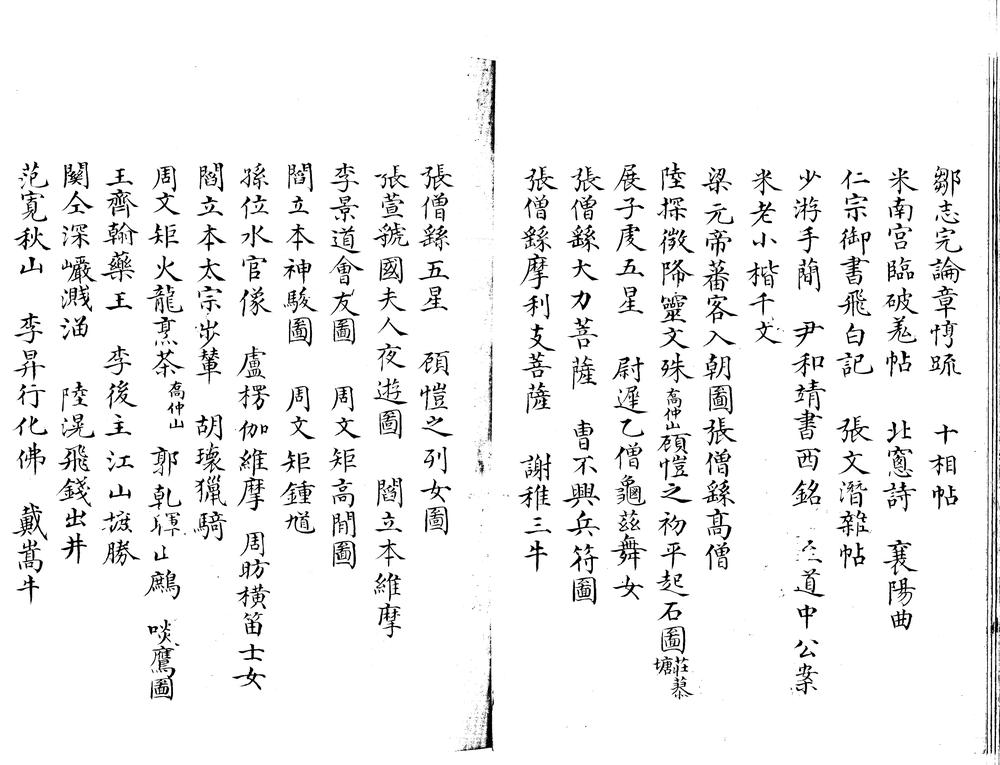 鄒志完論章惇䟽　十相帖
米南宫臨破羌帖　北窻詩　襄陽曲
仁宗御書飛白記　張文潛雜帖
少游手蕳　尹和靖書西銘　道中公案
米老小楷千文
梁元帝蕃客入朝圖張僧繇高僧
陸探微降靈文殊高仲山顧愷之初平起石圖莊慕塘
展子虔五星　尉遲乙僧龜茲舞女
張僧繇大力菩薩　曹不興兵符圖
張僧繇摩利支菩薩　謝稚三牛
張僧繇五星　顧愷之列女圖
張萱虢國夫人夜遊圖　閻立本維摩
李景道會友圖　周文矩高閒圖
閻立本神駿圖　周文矩鍾馗
孫位水官像　盧楞伽維摩　周昉横笛士女
閻立本太宗步輦　胡瓌獵騎
周文矩火龍烹茶高仲山　郭乹暉山鷓　啖鷹圖
王齊翰藥王　李後主江山摭勝
關仝深巖濺湍　陸滉飛錢出井
范寛秋山　李昇行化佛　戴嵩牛